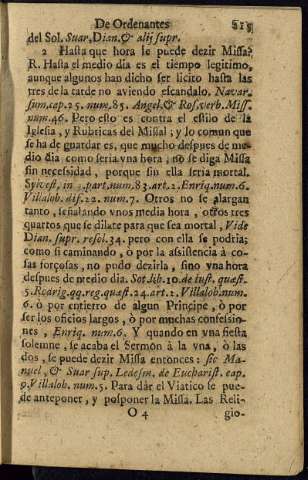 De Ordenantes 215
del Sol. Suar. Dian. & alij supr.
2 Hasta que hora se puede dezir Missa?
R. Hasta el medio dia es el tiempo legitimo,
aunque algunos han dicho ser licito hasta las
tres de la tarde no aviendo escandalo. Navar.
sum. cap. 25. num. 85. Angel. & Ros. verb. Miss.
num. 46. Pero esto es contra el estilo de la
Iglesia, y Rubricas del Missal; y lo comun que
se ha de guardar es, que mucho despues de me-
dio dia como seria vna hora, no se diga Missa
sin necessidad, porque sin ella seria mortal.
Sylvest. in 3. part. num. 83. art. 2. Enriq. num. 6.
Villalob. dif. 22. num. 7. Otros no se alargan
tanto, señalando vnos media hora, otros tres
quartos que se dilate para que sea mortal, Vide
Dian. supr. resol. 34. pero con ella se podria;
como si caminando, ò por la assistencia à co-
sas forçosas, no pudo dezirla, sino vna hora
despues de medio dia. Sot. lib. 10. de iust. quæst.
5. Rodrig. qq. reg. quæst. 24. art. 1. Villalob. num.
6. ò por entierro de algun Principe, ò por
ser los oficios largos, ò por muchas confessio-
nes, Enriq. num. 6. Y quando en vna fiesta
solemne, se acaba el Sermon à la vna, ò las
dos, se puede dezir Missa entonces: sic Ma-
nuel, & Suar sup. Ledesm. de Eucharist. cap.
9. Villalob. num. 5. Para dàr el Viatico se pue-
de anteponer, y posponer la Missa. Las Reli-
O 4 gio-